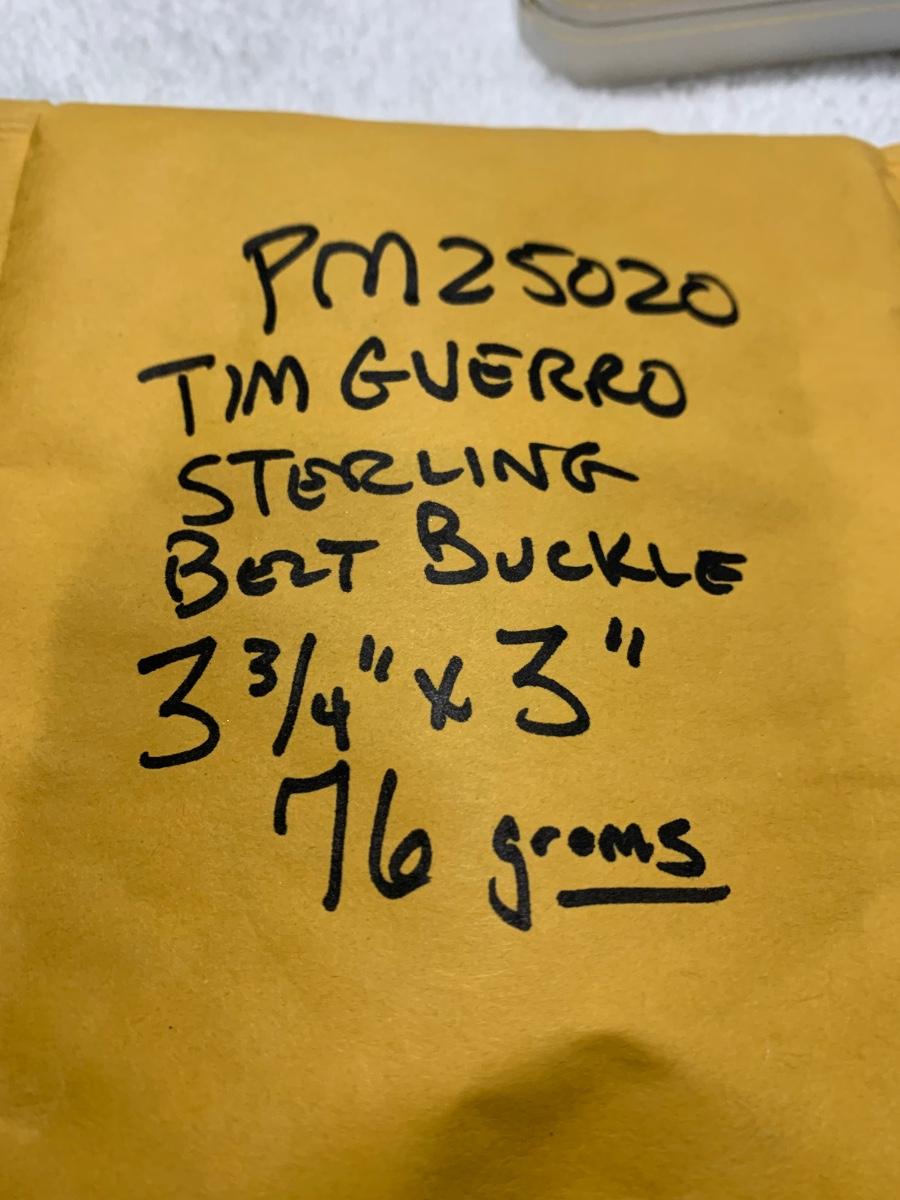 PM25020
TIM GUERRO
STERLING
BELT BUCKLE
3 3/4" x 3"
76 grams